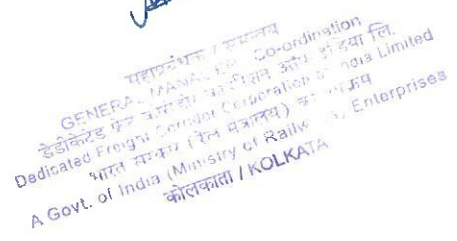 महाप्रबंधक / समन्वय
GENERAL MANAGER / Co-ordination
डेडीकेटेड फ्रेट कोरीडोर कॉर्पोरेशन ऑफ इंडिया लि.
Dedicated Freight Corridor Corporation of India Limited
भारत सरकार (रेल मंत्रालय) का उपक्रम
A Govt. of India (Ministry of Railways) Enterprises
कोलकाता / KOLKATA